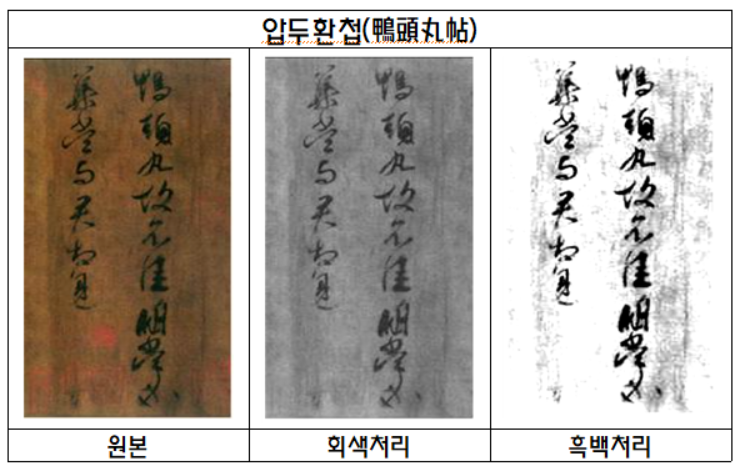 압두환첩(鴨頭丸帖)
鴨頭丸故不佳明當必
集當與君相見
鴨頭丸故不佳明當必
集當與君相見
鴨頭丸故不佳明當必
集當與君相見
원본
회색처리
흑백처리